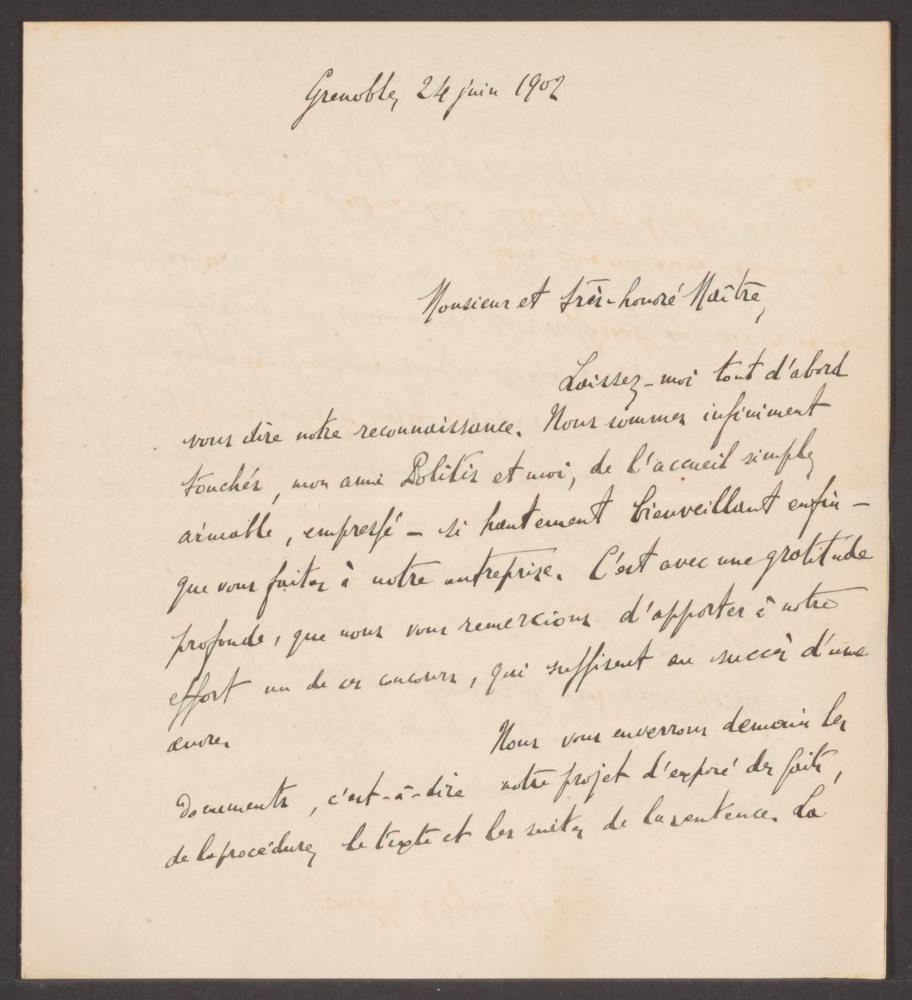 Grenoble, 24 juin 1902
Monsieur et très-honoré Maître,
Laissez-moi tout d'abord
vous dire notre reconnaissance. Nous sommes infiniment
touchés, mon ami Politis et moi, de l'accueil simple,
aimable, empressé – si hautement bienveillant enfin –
que vous faites à notre entreprise. C'est avec une gratitude
profonde, que nous vous remercions d'apporter à notre
effort un de ces concours, qui suffisent au succès d'une
œuvre.
Nous vous enverrons demain les
documents, c'est-à-dire notre projet d'exposé des faits,
de la procédure, le texte et les suites de la sentence. La